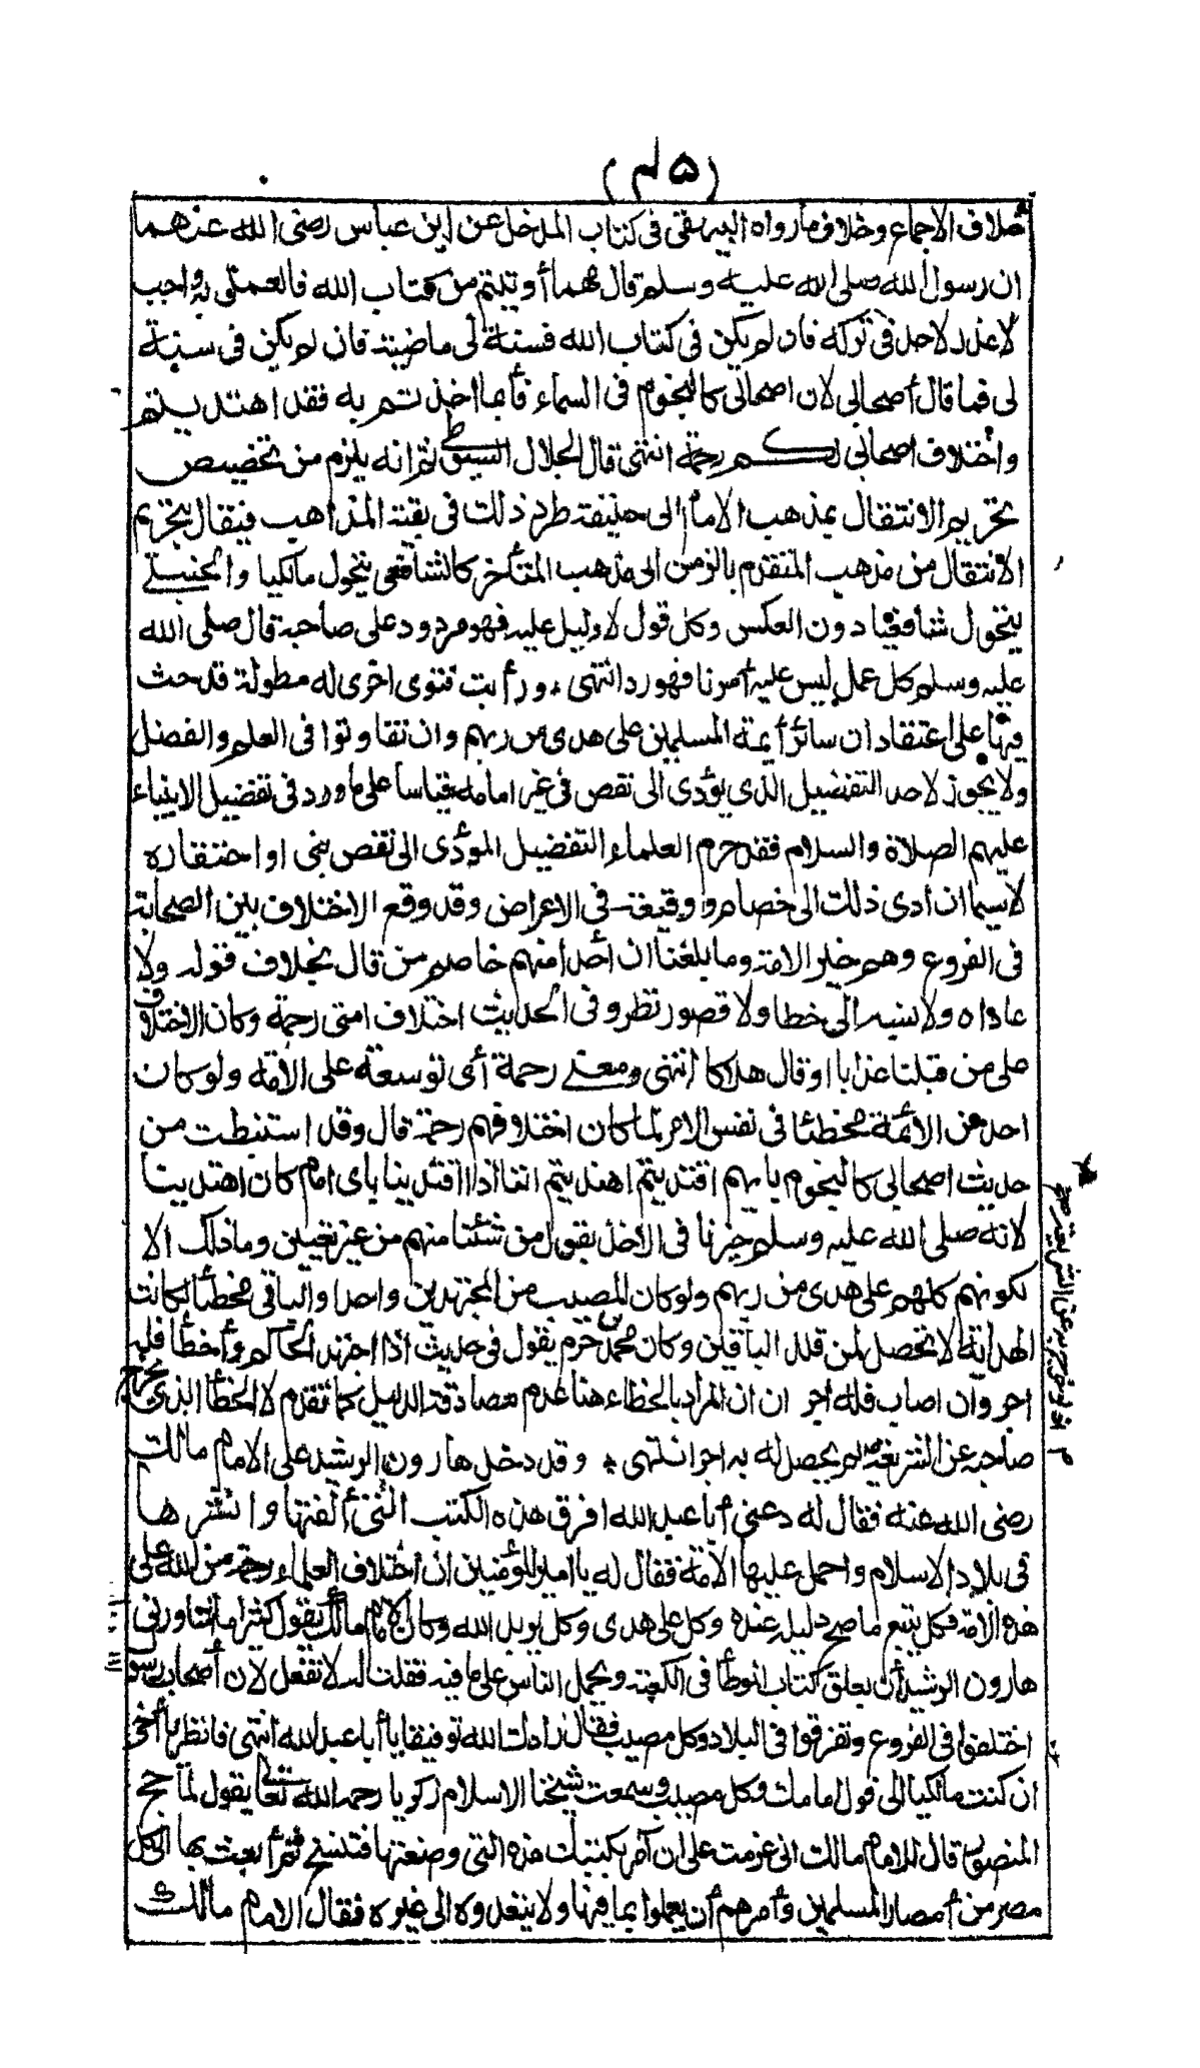 (٤٥)
خلاف الاجماع وخلاف ما رواه البيهقى فى كتاب المدخل عن ابن عباس رضى الله عنهما
ان رسول الله صلى الله عليه وسلم قال مهما أوتيتم من كتاب الله فالعمل به واجب
لا عذر لاحد فى تركه فان لم يكن فى كتاب الله فسنة لى ماضية فان لم يكن فى سنة
لى فما قال أصحابى لان اصحابى كالنجوم فى السماء فأيما اخذتم به فقد اهتديتم
واختلاف اصحابى لكم رحمة انتهى قال الجلال السيوطى ثم انه يلزم من تخصيص
تحريم الانتقال بمذهب الامام ابى حنيفة طرد ذلك فى بقية المذاهب فيقال بتحريم
الانتقال من مذهب المتقدم بالزمن الى مذهب المتأخر كالشافعى يتحول مالكيا والحنبلى
يتحول شافعيا دون العكس وكل قول لا دليل عليه فهو مردود على صاحبه قال صلى الله
عليه وسلم كل عمل ليس عليه أمرنا فهو رد انتهى ٭ ورأيت فتوى اخرى له مطولة قد حث
فيها على اعتقاد ان سائر أيمة المسلمين على هدى من ربهم وان تفاوتوا فى العلم والفضل
ولا يجوز لاحد التفضيل الذى يؤدى الى نقص فى غير امامه قياسا على ما ورد فى تفضيل الانبياء
عليهم الصلاة والسلام فقد حرم العلماء التفضيل المؤدى الى نقص نبى او احتقاره
لا سيما ان ادى ذلك الى خصام ووقيعة فى الاعراض وقد وقع الاختلاف بين الصحابة
فى الفروع وهم خير الامة وما بلغنا ان أحدا منهم خاصم من قال بخلاف قوله ولا
عاداه ولا نسبه الى خطا ولا قصور نظر وفى الحديث اختلاف امتى رحمة وكان الاختلاف
على من قبلنا عذابا او قال هلاكا انتهى ومعنى رحمة أى توسعة على الامة ولو كان
احد من الائمة مخطئا فى نفس الامر لما كان اختلافهم رحمة قال وقد استنبطت من
حديث اصحابى كالنجوم بايهم اقتديتم اهتديتم اننا اذا اقتدينا باى امام كان اهتدينا
لانه صلى الله عليه وسلم خيرنا فى الاخذ بقول من شئنا منهم من غير تعيين وما ذلك الا
لكونهم كلهم على هدى من ربهم ولو كان المصيب من المجتهدين واحدا والباقى مخطئا لكانت
الهداية لا تحصل لمن قلد الباقين وكان محمد بن حزم يقول فى حديث اذا اجتهد الحاكم وأخطأ فله
اجر وان اصاب فله اجران ان المراد بالخطاء هنا عدم مصادفة الدليل كما تقدم لا الخطأ الذى يخرج
صاحبه عن الشريعة لم يحصل له به اجر انتهى ٭ وقد دخل هارون الرشيد على الامام مالك
رضى الله عنه فقال له دعنى أبا عبد الله افرق هذه الكتب التى ألفتها وانشرها
فى بلاد الاسلام واحمل عليها الامة فقال له يا امير المؤمنين ان اختلاف العلماء رحمة من الله على
هذه الامة فكل يتبع ما صح دليله عنده وكل على هدى وكل يريد الله وكان الامام مالك يقول كثيرا ما شاورنى
هارون الرشيد أن يعلق كتاب الموطأ فى الكعبة ويحمل الناس على ما فيه فقلت له لا تفعل لان أصحاب رسول
اختلفوا فى الفروع وتفرقوا فى البلاد وكل مصيب فقال زادك الله توفيقا يا أبا عبد الله انتهى فانظر يا أخى
ان كنت مالكيا الى قول امامك وكل مصيب وسمعت شيخنا شيخ الاسلام زكريا رحمه الله تعالى يقول لما حج
المنصور قال للامام مالك انى عزمت على ان آمر بكتبك هذه التى وضعتها فتنسخ ثم أبعث بها الى كل
مصر من أمصار المسلمين وأمرهم أن يعملوا بما فيها ولا يتعدوه الى غيره فقال الامام مالك